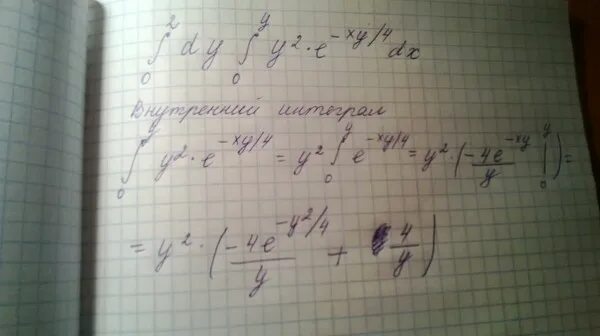 ∫₀² dy ∫₀ʸ y² · e^(-xy/4) dx
Внутренний интеграл
∫₀ʸ y² · e^(-xy/4) = y² ∫₀ʸ e^(-xy/4) = y² · (-4e^(-xy)/y |₀ʸ) =
= y² · (-4e^(-y²/4)/y + 4/y)